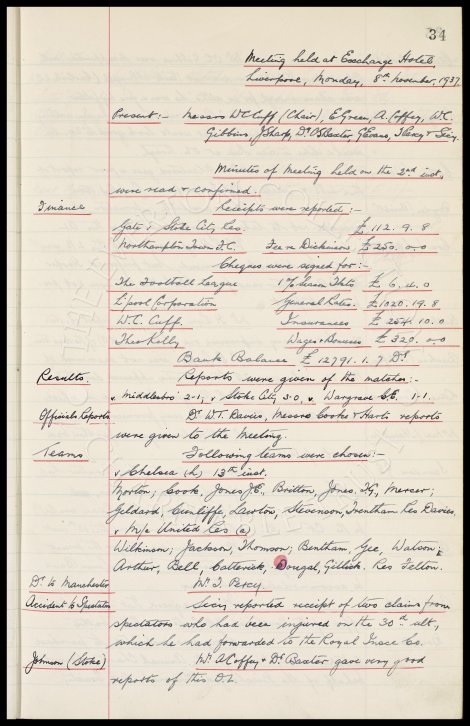 34
Meeting held at Exchange Hotel,
Liverpool, Monday, 8th November, 1937.
Present:- Messrs W.C. Cuff (Chair), E. Green, A. Coffey, W.C.
Gibbins, J. Sharp, Dr. Baxter, G. Evans, T. Percy & Secy.
Minutes of Meeting held on the 2nd inst,
were read & confirmed.
Finance
Receipts were reported:-
Gate v Stoke City Res £112. 9. 8
Northampton Town F.C. Fee re Dickinson £250. 0. 0
Cheques were signed for:-
The Football League 1% Season Tkts £ 6. 4. 0
L'pool Corporation General Rates. £1020. 19. 8
W.C. Cuff. Insurances £ 254. 10. 0
Theo Kelly Wages & Bonuses £ 320. 0. 0
Bank Balance £ 12791. 1. 7 Dr
Results. Reports were given of the matches:-
v. Middlesbro' 2-1, v Stoke City 3-0, v. Wargrave C.C. 1-1.
Officials Reports Dr W.T. Davies, Messrs Cooke & Harts reports
were given to the Meeting.
Teams Following teams were chosen:-
v Chelsea (h) 13th inst.
Morton; Cook, Jones J.E., Britton, Jones. T.G., Mercer;
Geldard, Cunliffe, Lawton, Stevenson, Trentham Res Davies.
v M/c United Res (a)
Wilkinson; Jackson, Thomson; Bentham, Gee, Watson;
Arthur, Bell, Catterick, Dougal, Gillick. Res Felton.
Dr to Manchester Mr. T. Percy.
Accident to Spectators Secy reported receipt of two claims from
spectators who had been injured on the 30th ult,
which he had forwarded to the Royal Insce Co.
Johnson (Stoke) Mr A. Coffey & Dr Baxter gave very good
reports of this O.L.